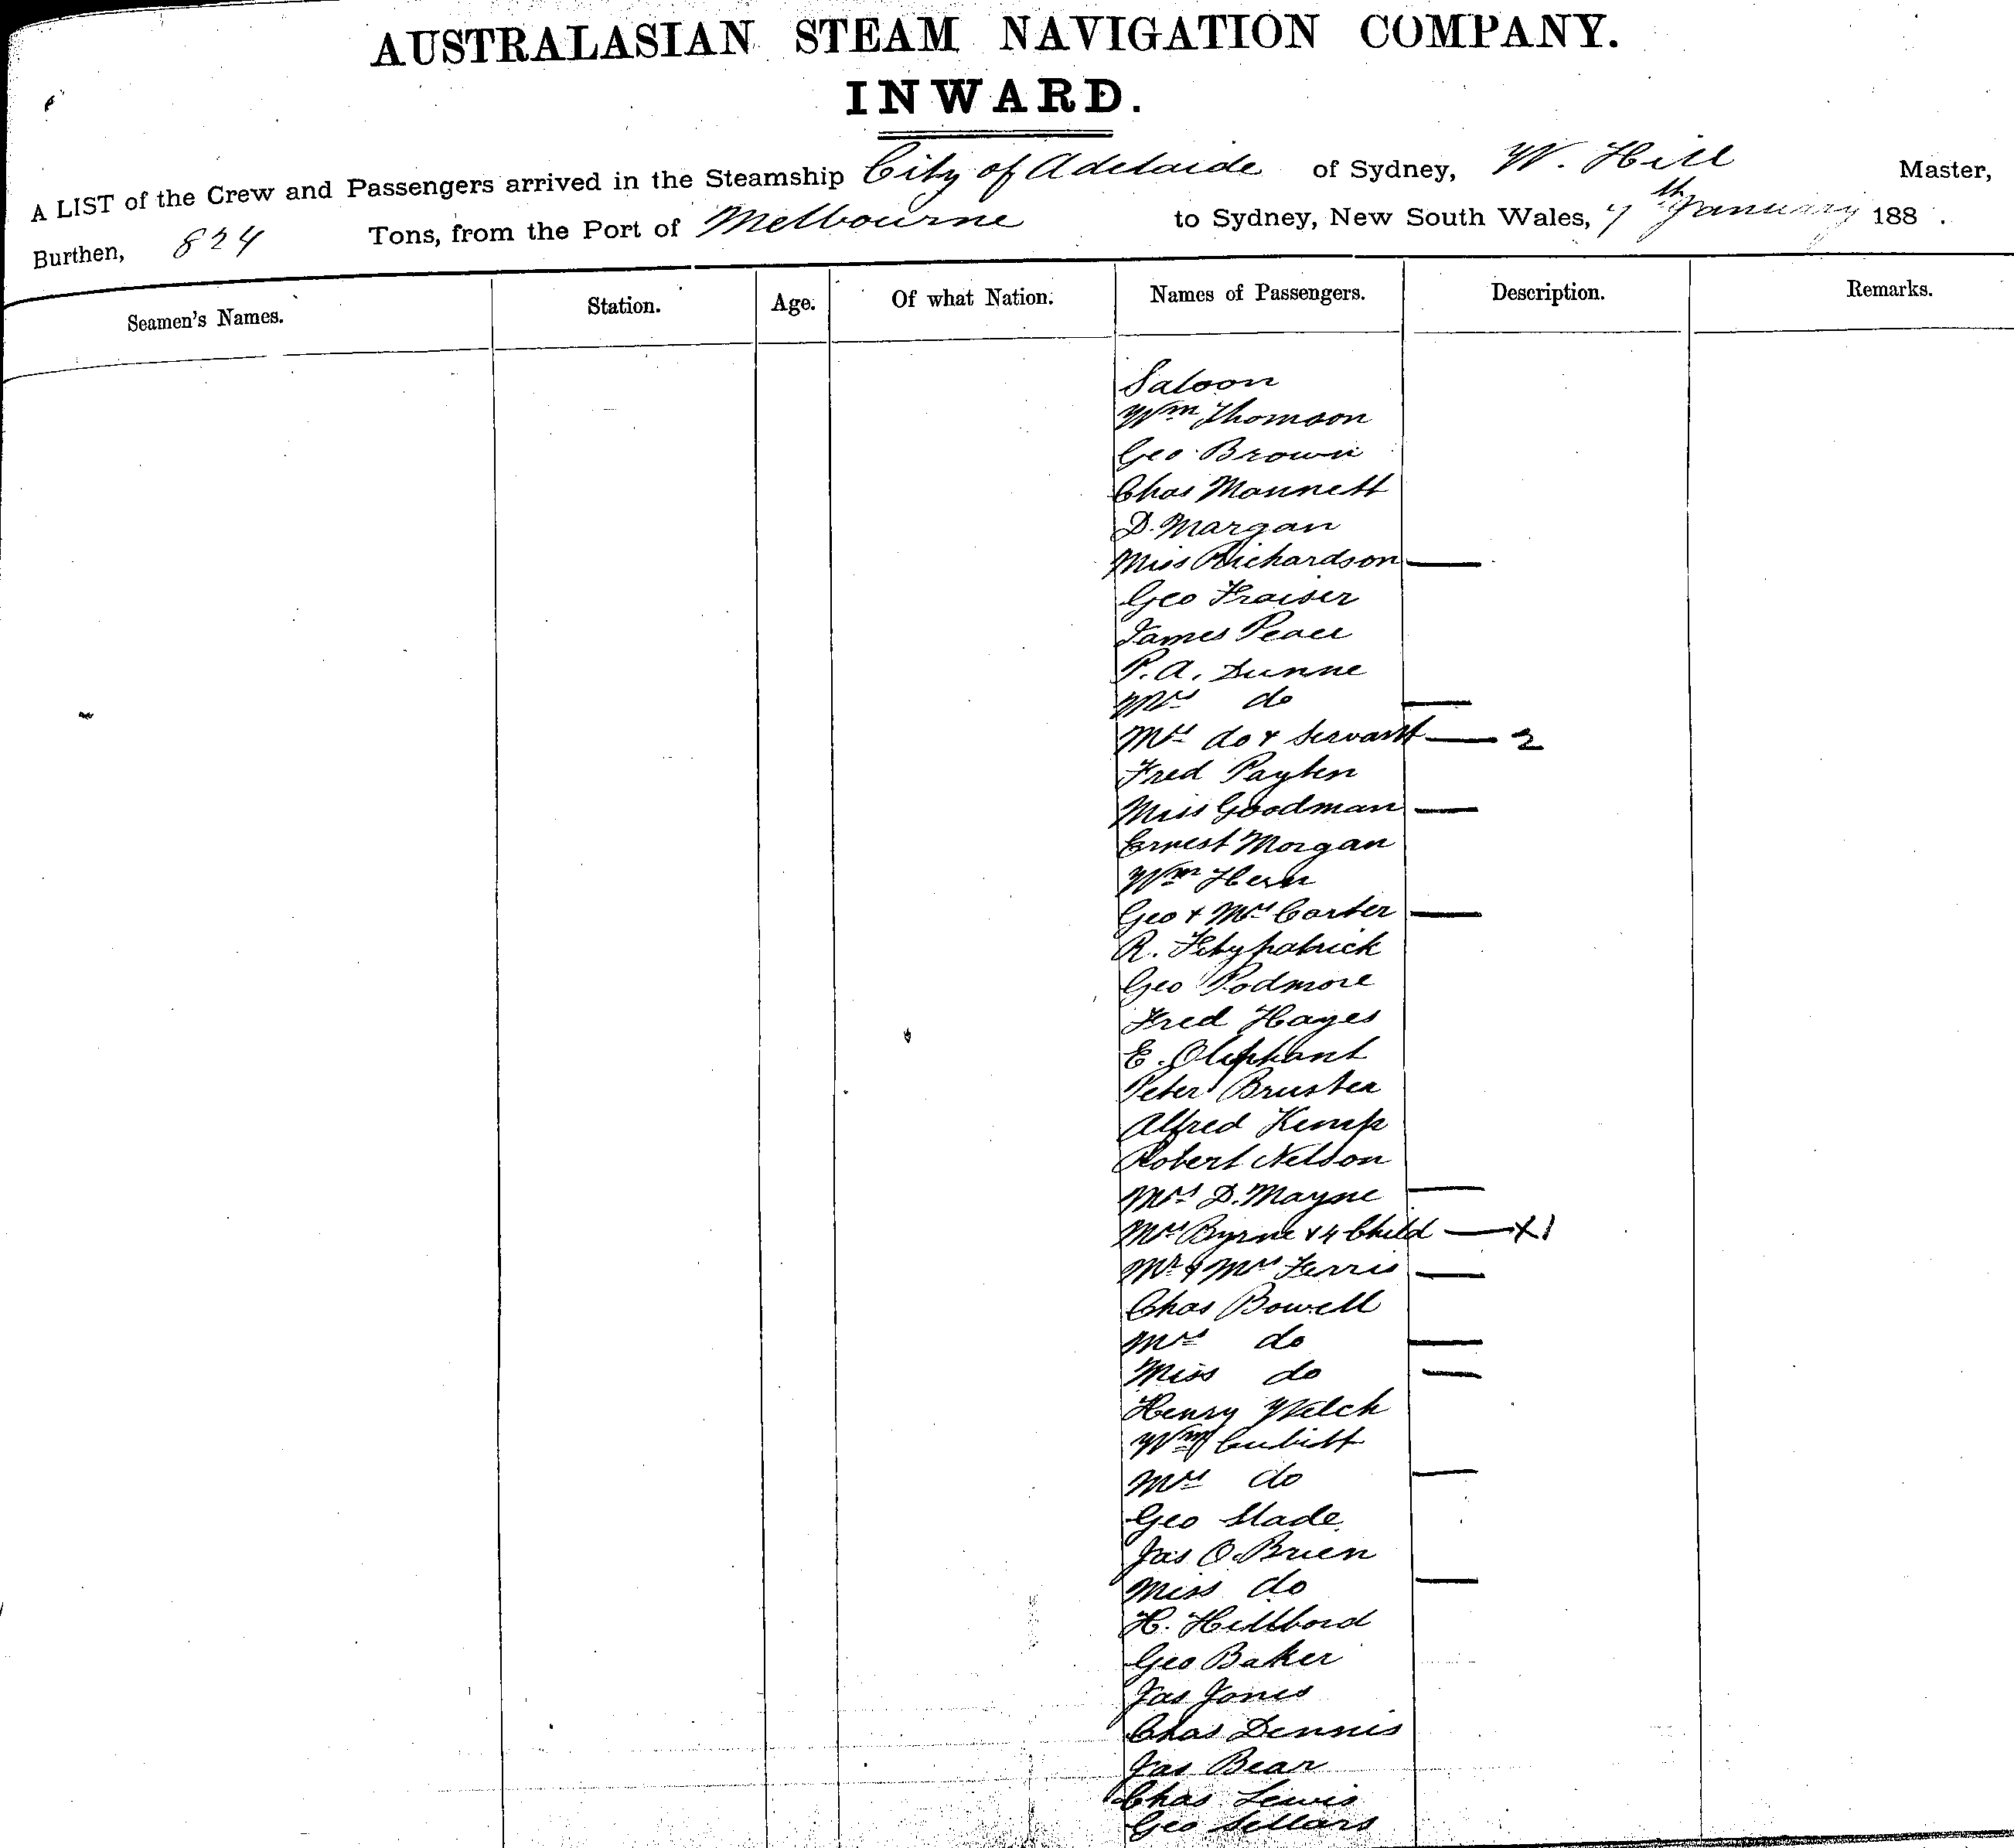 AUSTRALASIAN STEAM NAVIGATION COMPANY.
INWARD.
A LIST of the Crew and Passengers arrived in the Steamship City of Adelaide of Sydney, W. Hill Master,
Burthen, 824 Tons, from the Port of Melbourne to Sydney, New South Wales, 7th January 188 .
Seamen's Names. Station. Age. Of what Nation. Names of Passengers. Description. Remarks.
Saloon
Wm Thomson
Geo Brown
Chas Mannett
D. Margan
Miss Richardson —
Geo Fraiser
James Peace
P. A. Dunne
Mrs do —
Mrs do & Servant — 2
Fred Payten
Miss Goodman —
Ernest Morgan
Wm Hern
Geo & Mrs Carter —
R. Fitzpatrick
Geo Podmore
Fred Hayes
E. Oliphant
Peter Bruster
Alfred Kemp
Robert Nelson
Mrs D. Mayne —
Mrs Byrne & 4 Child —
Mr & Mrs Ferris —
Chas Bowell
Mrs do —
Miss do —
Henry Welch
Wm Cubitt
Mrs do —
Geo Slade
Jas O.Brien
Miss do —
H. Hillbord
Geo Baker
Jas Jones
Chas Dennis
Jas Bear
Chas Lewis
Geo Sellars